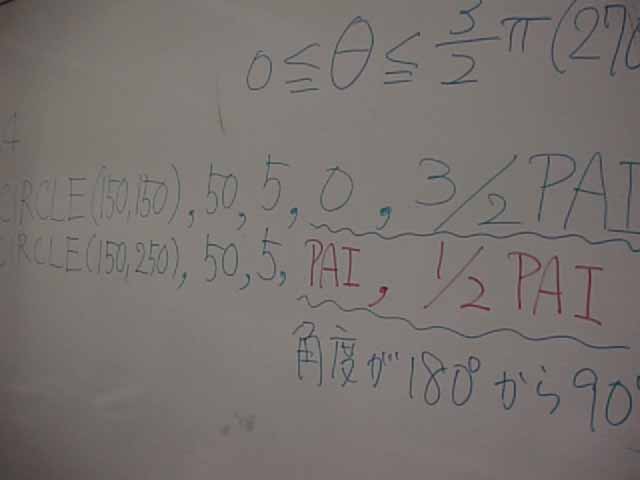 0≦θ≦3/2π(270
4
CIRCLE(150,150),50,5,0,3/2PAI
CIRCLE(150,250),50,5,PAI,1/2PAI
角度が180°から90°